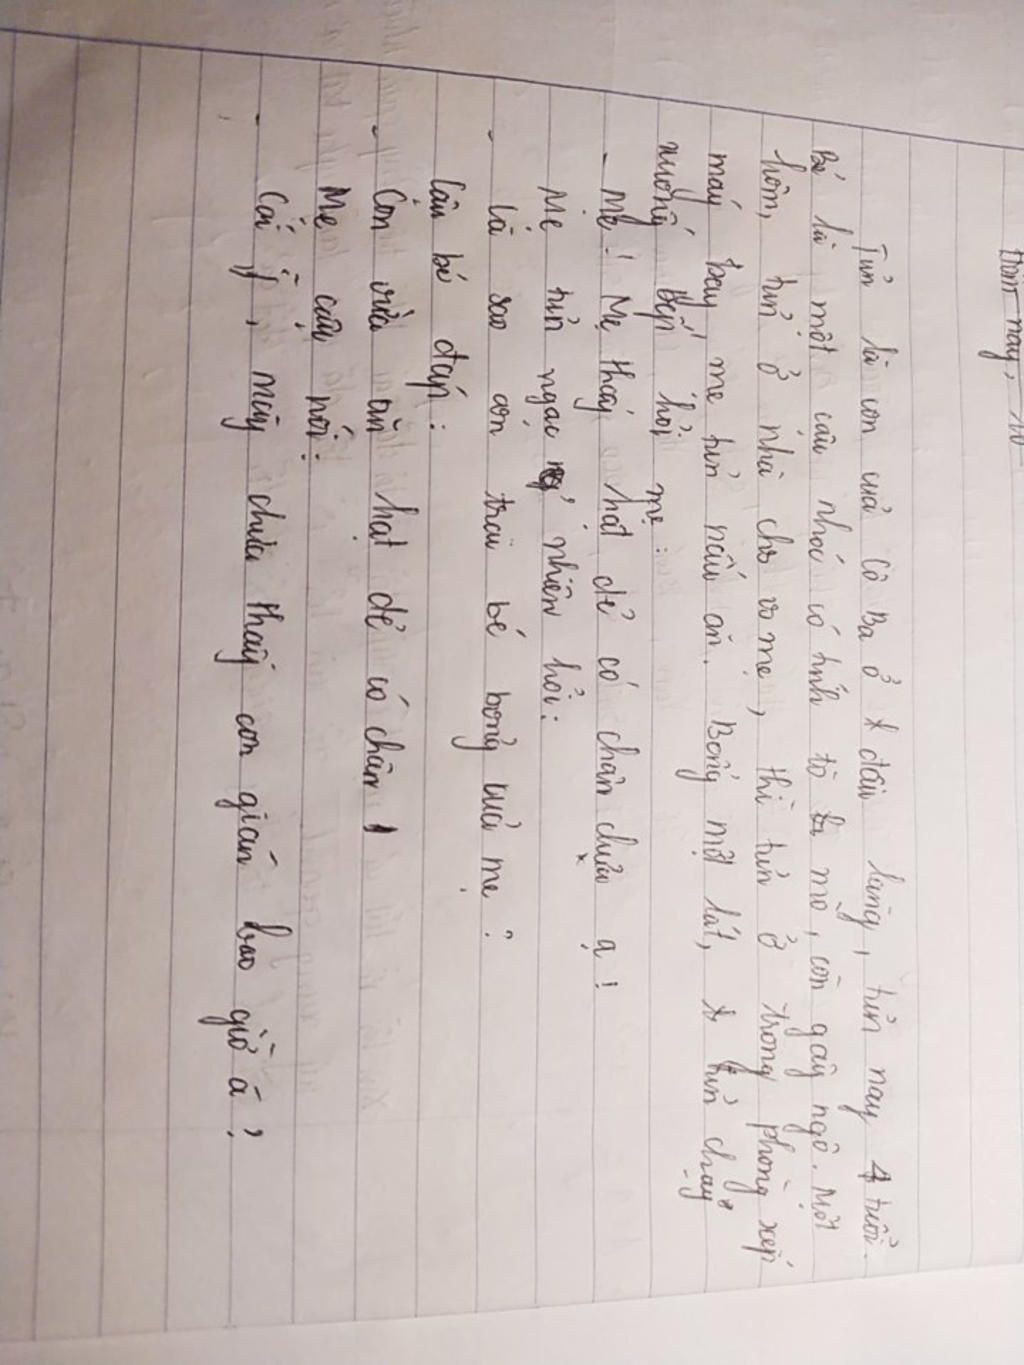 Hôm nay,
Tủn là con của cô Ba ở đầu làng, tủn nay 4 tuổi.
Bé là một cậu nhóc có tính tò mò, còn gây ngô. Một
hôm, tủn ở nhà chờ vo mẹ, thì tủn ở trong phòng xếp
máy bay, mẹ tủn nấu ăn. Bỗng một lát, tủn chạy
xuống bếp hỏi mẹ:
- Mẹ! Mẹ thấy hạt dẻ có chân chưa ạ!
Mẹ tủn ngạc nhiên hỏi:
- Là sao con trai bé bỏng của mẹ?
Cậu bé đáp:
- Con vừa ăn hạt dẻ có chân
Mẹ cậu nói:
- Cái gì, mày chưa thấy con gián bao giờ à?